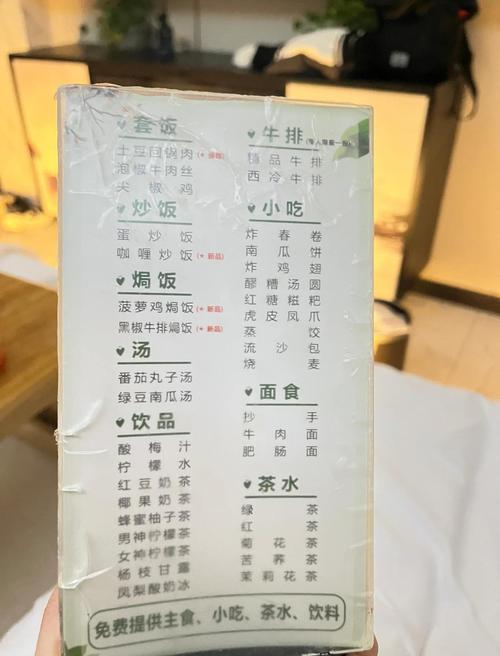 套饭
土豆回锅肉
泡椒牛肉丝
尖椒鸡
炒饭
蛋炒饭
咖喱炒饭(★ 新品)
焗饭
菠萝鸡焗饭(★ 新品)
黑椒牛排焗饭(★ 新品)
汤
番茄丸子汤
绿豆南瓜汤
饮品
酸梅汁
柠檬水
红豆奶茶
椰果奶茶
蜂蜜柚子茶
男神柠檬茶
女神柠檬茶
杨枝甘露
凤梨酸奶冰
牛排(每人限量一份)
精品牛排
西冷牛排
小吃
炸春卷
南瓜饼
炸鸡翅
醪糟汤圆
红糖糍粑
虎皮凤爪
蒸饺
流沙包
烧麦
面食
抄手
牛肉面
肥肠面
茶水
绿茶
红茶
菊花茶
苦荞茶
茉莉花茶
免费提供主食、小吃、茶水、饮料